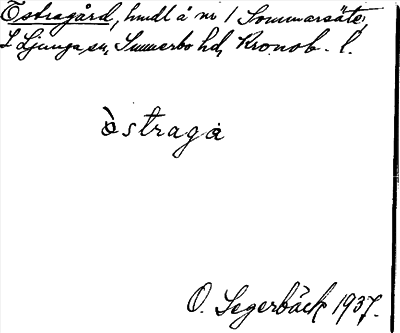 Östragård, hmdl å nr 1 Sommarsäte,
L Ljunga sn, Sunnerbo hd, Kronob. l.
östraga
O. Segerbäck 1937.